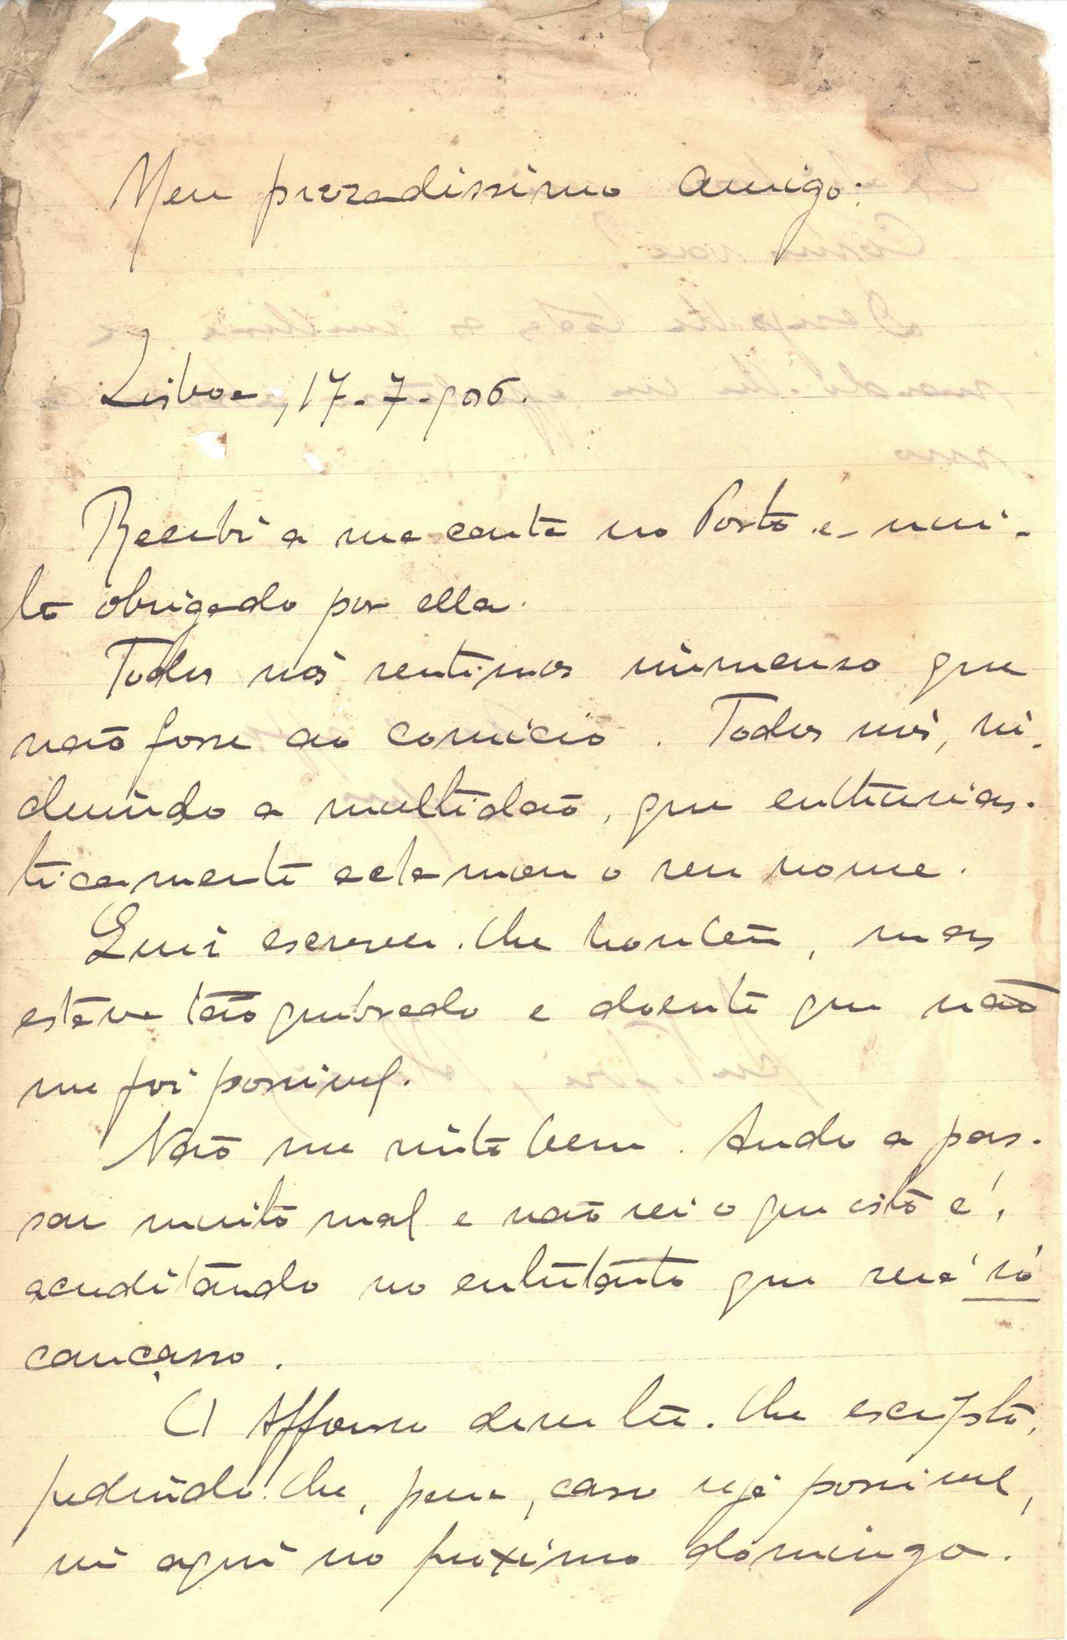 Meu prezadissimo amigo:
Lisboa, 17-7-906.
Recebi a sua carta no Porto e mui-
to obrigado por ella.
Todos nós sentimos immenso que
não fosse ao comicio. Todos nós, in-
cluindo a multidão, que enthusias-
ticamente aclamou o seu nome.
Quiz escrever-lhe hontem, mas
estive tão quebrado e doente que não
me foi possivel.
Não me sinto bem. Ando a pas-
sar muito mal e não sei o que isto é,
acreditando no entretanto que será só
cançasso.
O Affonso deve ter-lhe escripto,
pedindo-lhe, para, caso seja possivel,
vir aqui no proximo domingo.